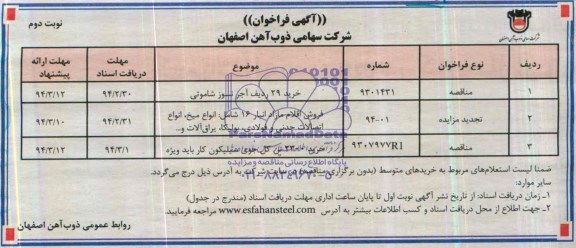 ((آگهی فراخوان))
نوبت دوم
شرکت سهامی ذوب آهن اصفهان
شرکت سهامی ذوب آهن اصفهان
ردیف نوع فراخوان شماره موضوع مهلت دریافت اسناد مهلت ارائه پیشنهاد
۱ مناقصه ۹۳۰۱۴۳۱ خرید ۲۹ ردیف آجر نسوز شاموتی ۹۴/۲/۳۰ ۹۴/۳/۱۲
۲ تجدید مزایده ۹۴-۰۰۱ فروش اقلام مازاد انبار ۱۶ شامل: انواع میخ، انواع اتصالات چدنی و فولادی، یراق آلات و.. ۹۴/۲/۳۱ ۹۴/۳/۱۰
۳ مناقصه ۹۳۰۷۹۷۷R1 خرید تن کک جوی سیلیکون کار باید ویژه ۹۴/۳/۱ ۹۴/۳/۱۲
ParsNamadData
پایگاه اطلاع رسانی مناقصه و مزایده
۰۲۱-۸۸۳۴۹۶۷۰-۵
ضمنا لیست استعلام‌های مربوط به خریدهای متوسط (بدون برگزاری مناقصه) در سایت شرکت به آدرس ذیل درج می‌گردد.
سایر موارد:
۱ـ زمان دریافت اسناد: از تاریخ نشر آگهی نوبت اول تا پایان ساعت اداری مهلت دریافت اسناد (مندرج در جدول)
۲ـ جهت اطلاع از محل دریافت اسناد و کسب اطلاعات بیشتر به آدرس www.esfahansteel.com مراجعه فرمایید.
روابط عمومی ذوب آهن اصفهان